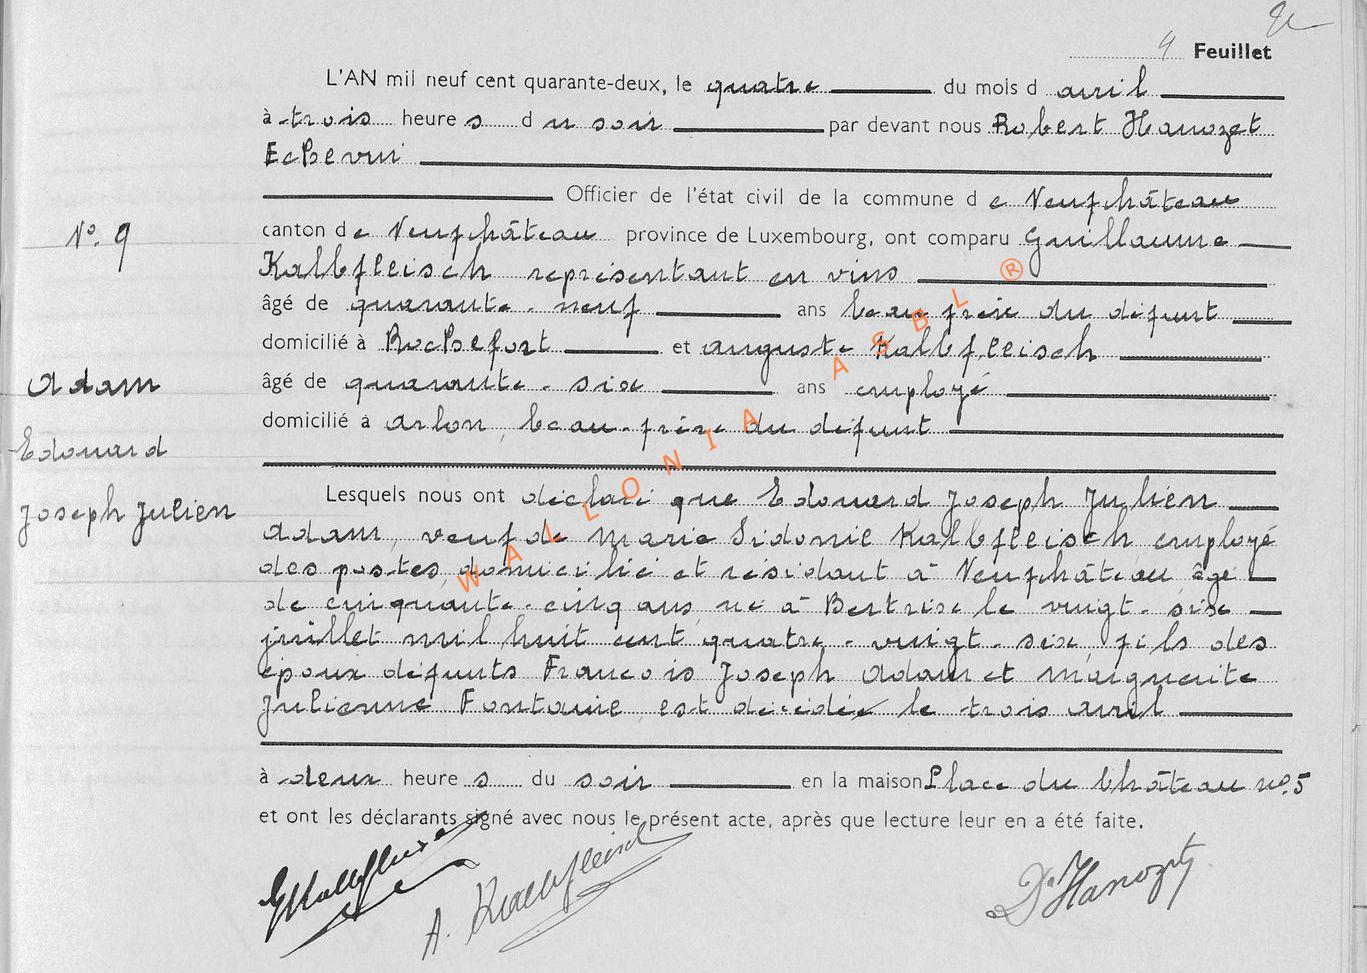 9 Feuillet
L'AN mil neuf cent quarante-deux, le quatre du mois d avril
à trois heure s d u soir par devant nous Robert Hanozet
Echevin
Officier de l'état civil de la commune d e Neufchâteau
N° 9
canton d e Neufchâteau province de Luxembourg, ont comparu Guillaume
Kalbfleisch représentant en vins
âgé de quarante-neuf ans beau frère du défunt
domicilié à Rochefort et Auguste Kalbfleisch
Adam
âgé de quarante-six ans employé
domicilié à Arlon, beau-frère du défunt
Edouard
Joseph Julien
Lesquels nous ont déclaré que Edouard Joseph Julien
Adam, veuf de Marie Sidonie Kalbfleisch, employé
des postes, domicilié et résidant à Neufchâteau âgé
de cinquante-cinq ans, né à Bertrix le vingt-six
juillet mil huit cent quatre-vingt-six, fils des
époux défunts Francois Joseph Adam et Marguerite
Julienne Fontaine, est décédé le trois avril
à deux heure s du soir en la maison Place du Château n° 5
et ont les déclarants signé avec nous le présent acte, après que lecture leur en a été faite.
GKalbfleisch
A. Kalbfleisch
Dr Hanozet
WALLONIA ASBL ®